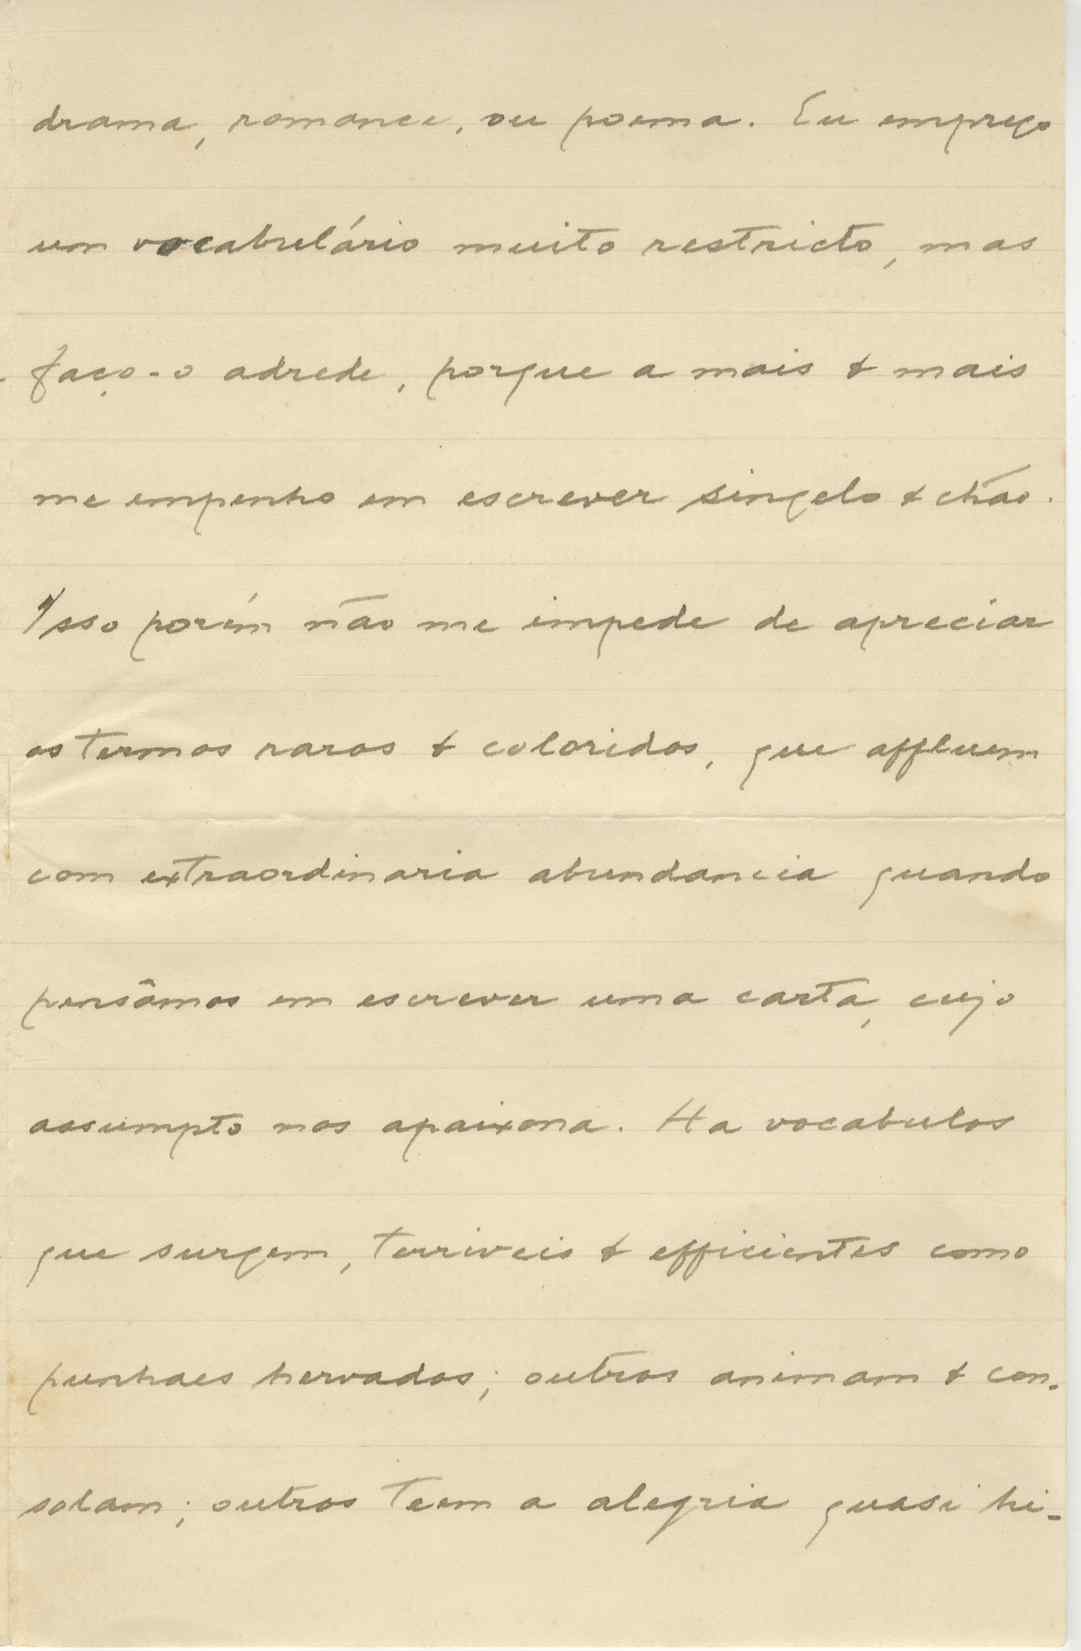 drama, romance, ou poema. Eu emprego
um vocabulário muito restricto, mas
faço-o adrede, porque a mais & mais
me empenho em escrever singelo & chão.
Isso porém não me impede de apreciar
os termos raros & coloridos, que affluem
com extraordinaria abundancia quando
pensâmos em escrever uma carta, cujo
assumpto nos apaixona. Ha vocabulos
que surgem, terriveis & efficientes como
punhaes hervados; outros animam & con-
solam; outros teem a alegria quasi hi-